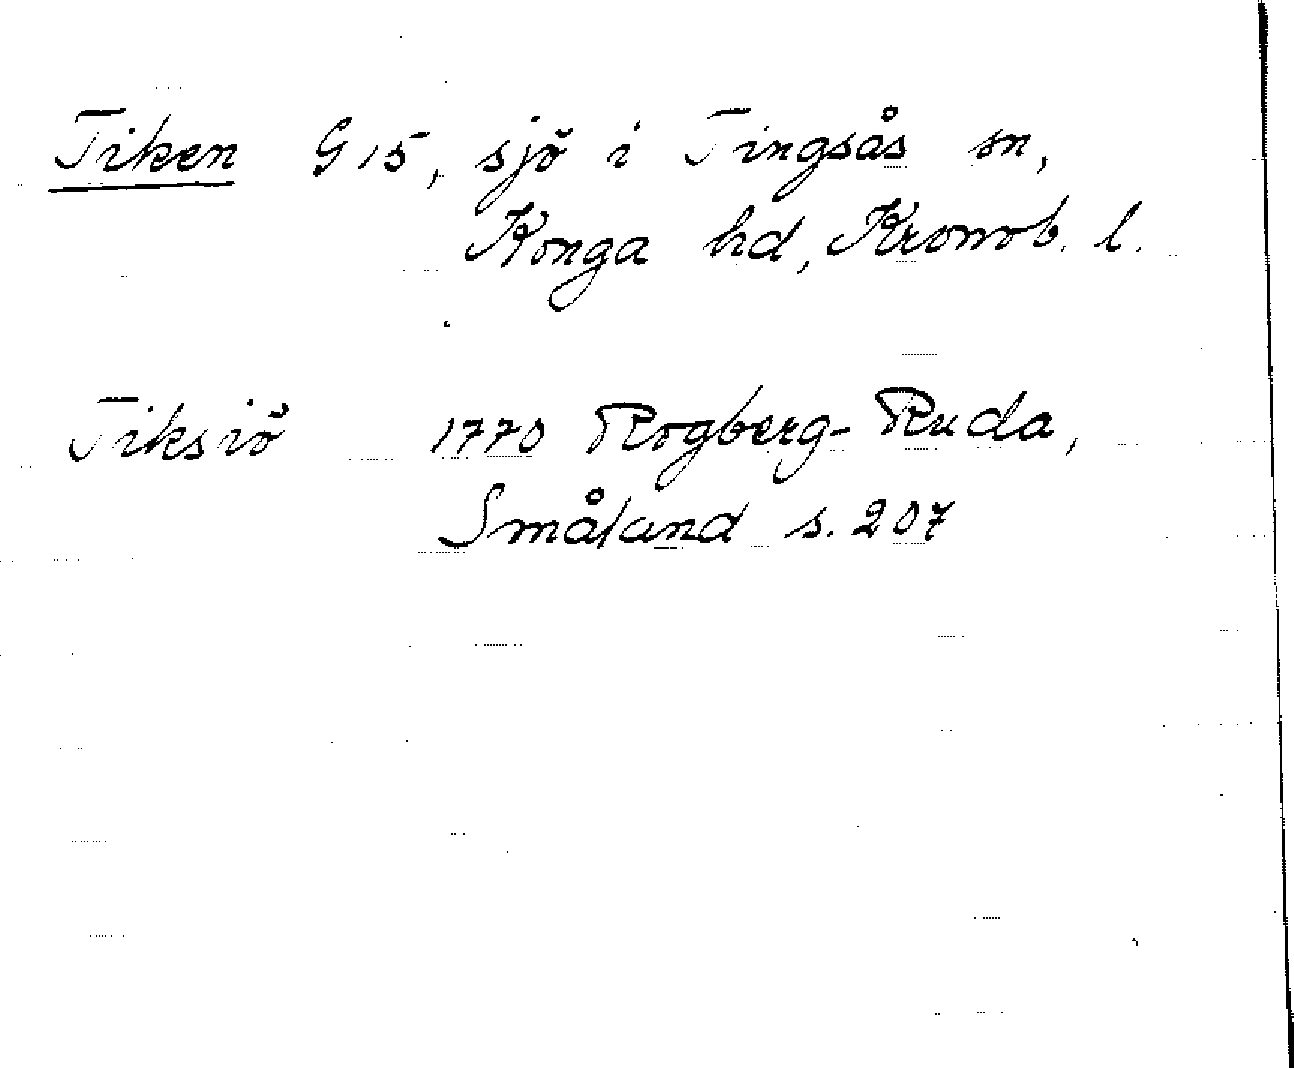 Tiken G 15, sjö i Tingsås sn,
Konga hd, Kronob. l.
Tiksiö 1770 Rogberg-Ruda,
Småland s. 207